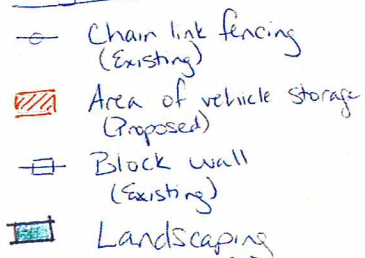 Chain link fencing
(Existing)
Area of vehicle storage
(Proposed)
Block wall
(Existing)
Landscaping